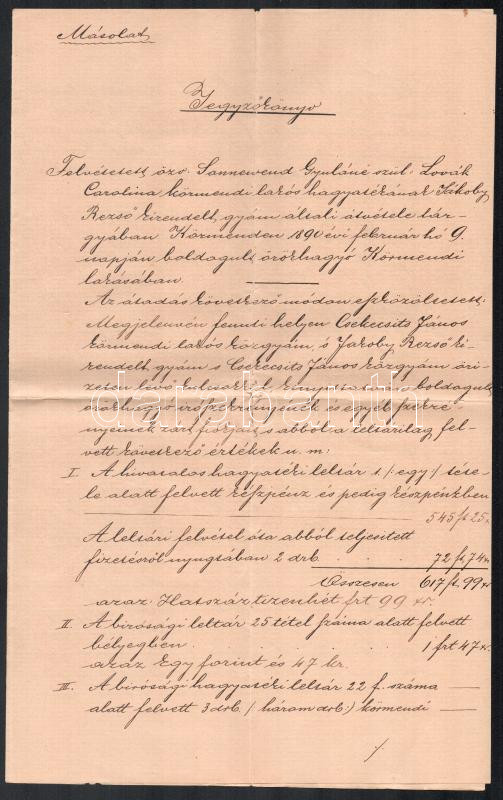 Másolat
Jegyzőkönyv
Felvétetett özv. Sonnewend Gyuláné szül. Lovák
Carolina körmendi lakós hagyatékának Jákoby
Rezső kirendelt gyám általi átvétele tár-
gyában Körmenden 1890 évi február hó 9.
napján boldogult örökhagyó Körmendi
lakásában.
Az átadás következő módon eszközöltetett:
Megjelenvén fennti helyen Csekecsits János
körmendi lakós közgyám, s Jakoby Rezső ki-
rendelt gyám s Csekecsits János közgyám őri-
zetén lévő kulcsokkal a boldogult
örökhagyó és egyéb szekré-
nyeinek zárt s abból a leltárilag fel-
vett következő értékek u. m:
I. A hivatalos hagyatéki leltár 1. /: egy :/ téte-
le alatt felvett készpénz és pedig készpénzben
545 ft 25 x
A leltári felvétel óta abból teljesített
fizetésről nyugtában 2 drb. . . . 72 ft. 74 kr
Összesen 617 ft. 99 xr
azaz: Hatszáz tizenhét frt 99 xr.
II. A bírósági leltár 25 tétel száma alatt felvett
bélyegben . . . . 1 frt 47 xr.
azaz Egy forint és 47 kr.
III. A bírósági hagyatéki leltár 22 f. száma
alatt felvett 3 drb. /: három drb :/ körmendi
./.
darabanth